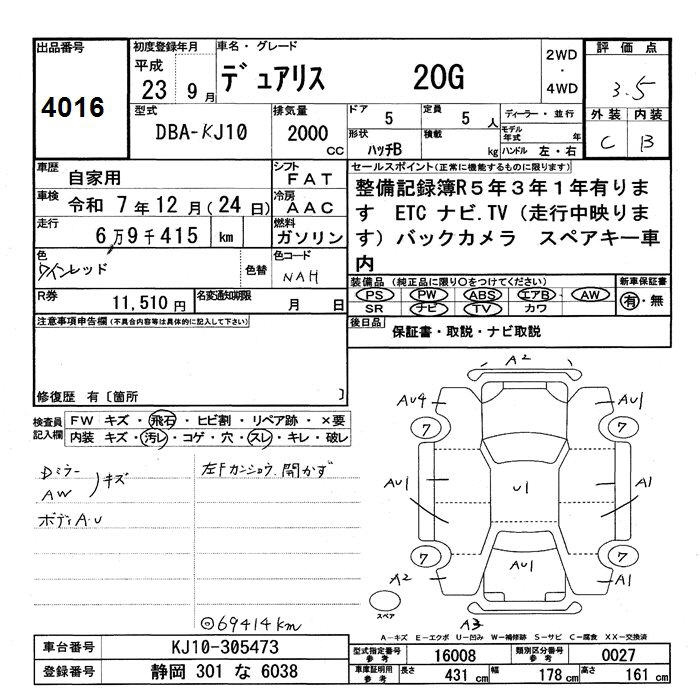 出品番号
4016
初度登録年月
平成
23 9 月
車名・グレード
デュアリス 20G
2WD
・
4WD
評価点
3.5
型式
DBA-KJ10
排気量
2000 CC
ドア
5
定員
5 人
形状
ハッチB
積載
kg
ディーラー・並行
モデル
年式 年
ハンドル 左・右
外装 内装
C B
車歴
自家用
シフト
FAT
車検
令和 7 年 12 月 (24 日)
冷房
AAC
走行
6万9千415 km
燃料
ガソリン
色
ワインレッド
色替
色コード
NAH
R券
11,510 円
名変通知期限
月 日
セールスポイント(正常に機能するものに限ります)
整備記録簿R5年3年1年有りま
す ETC ナビ.TV (走行中映りま
す) バックカメラ スペアキー車
内
装備品 (純正品に限り○をつけてください)
PS PW ABS エアB AW
SR ナビ TV カワ
新車保証書
有・無
後日品
保証書・取説・ナビ取説
注意事項申告欄(不具合内容等は具体的に記入して下さい)
修復歴 有〔箇所 〕
検査員
記入欄
FW キズ・飛石・ヒビ割・リペア跡・×要
内装 キズ・汚レ・コゲ・穴・スレ・キレ・破レ
Dミラー
AW
)キズ
ボディA.U
左Fカンショウ.開かず
◎69414km
A2
AU4 AU1
7 7
AU1 U1 A1
7 7
AU1
A2 A1
スペア
A3
A-キズ E-エクボ U-凹み W-補修跡 S-サビ C-腐食 XX-交換済
車台番号
KJ10-305473
登録番号
静岡 301 な 6038
型式指定番号
参考
16008
類別区分番号
参考
0027
車庫証明用
参考
長さ
431 cm
幅
178 cm
高さ
161 cm